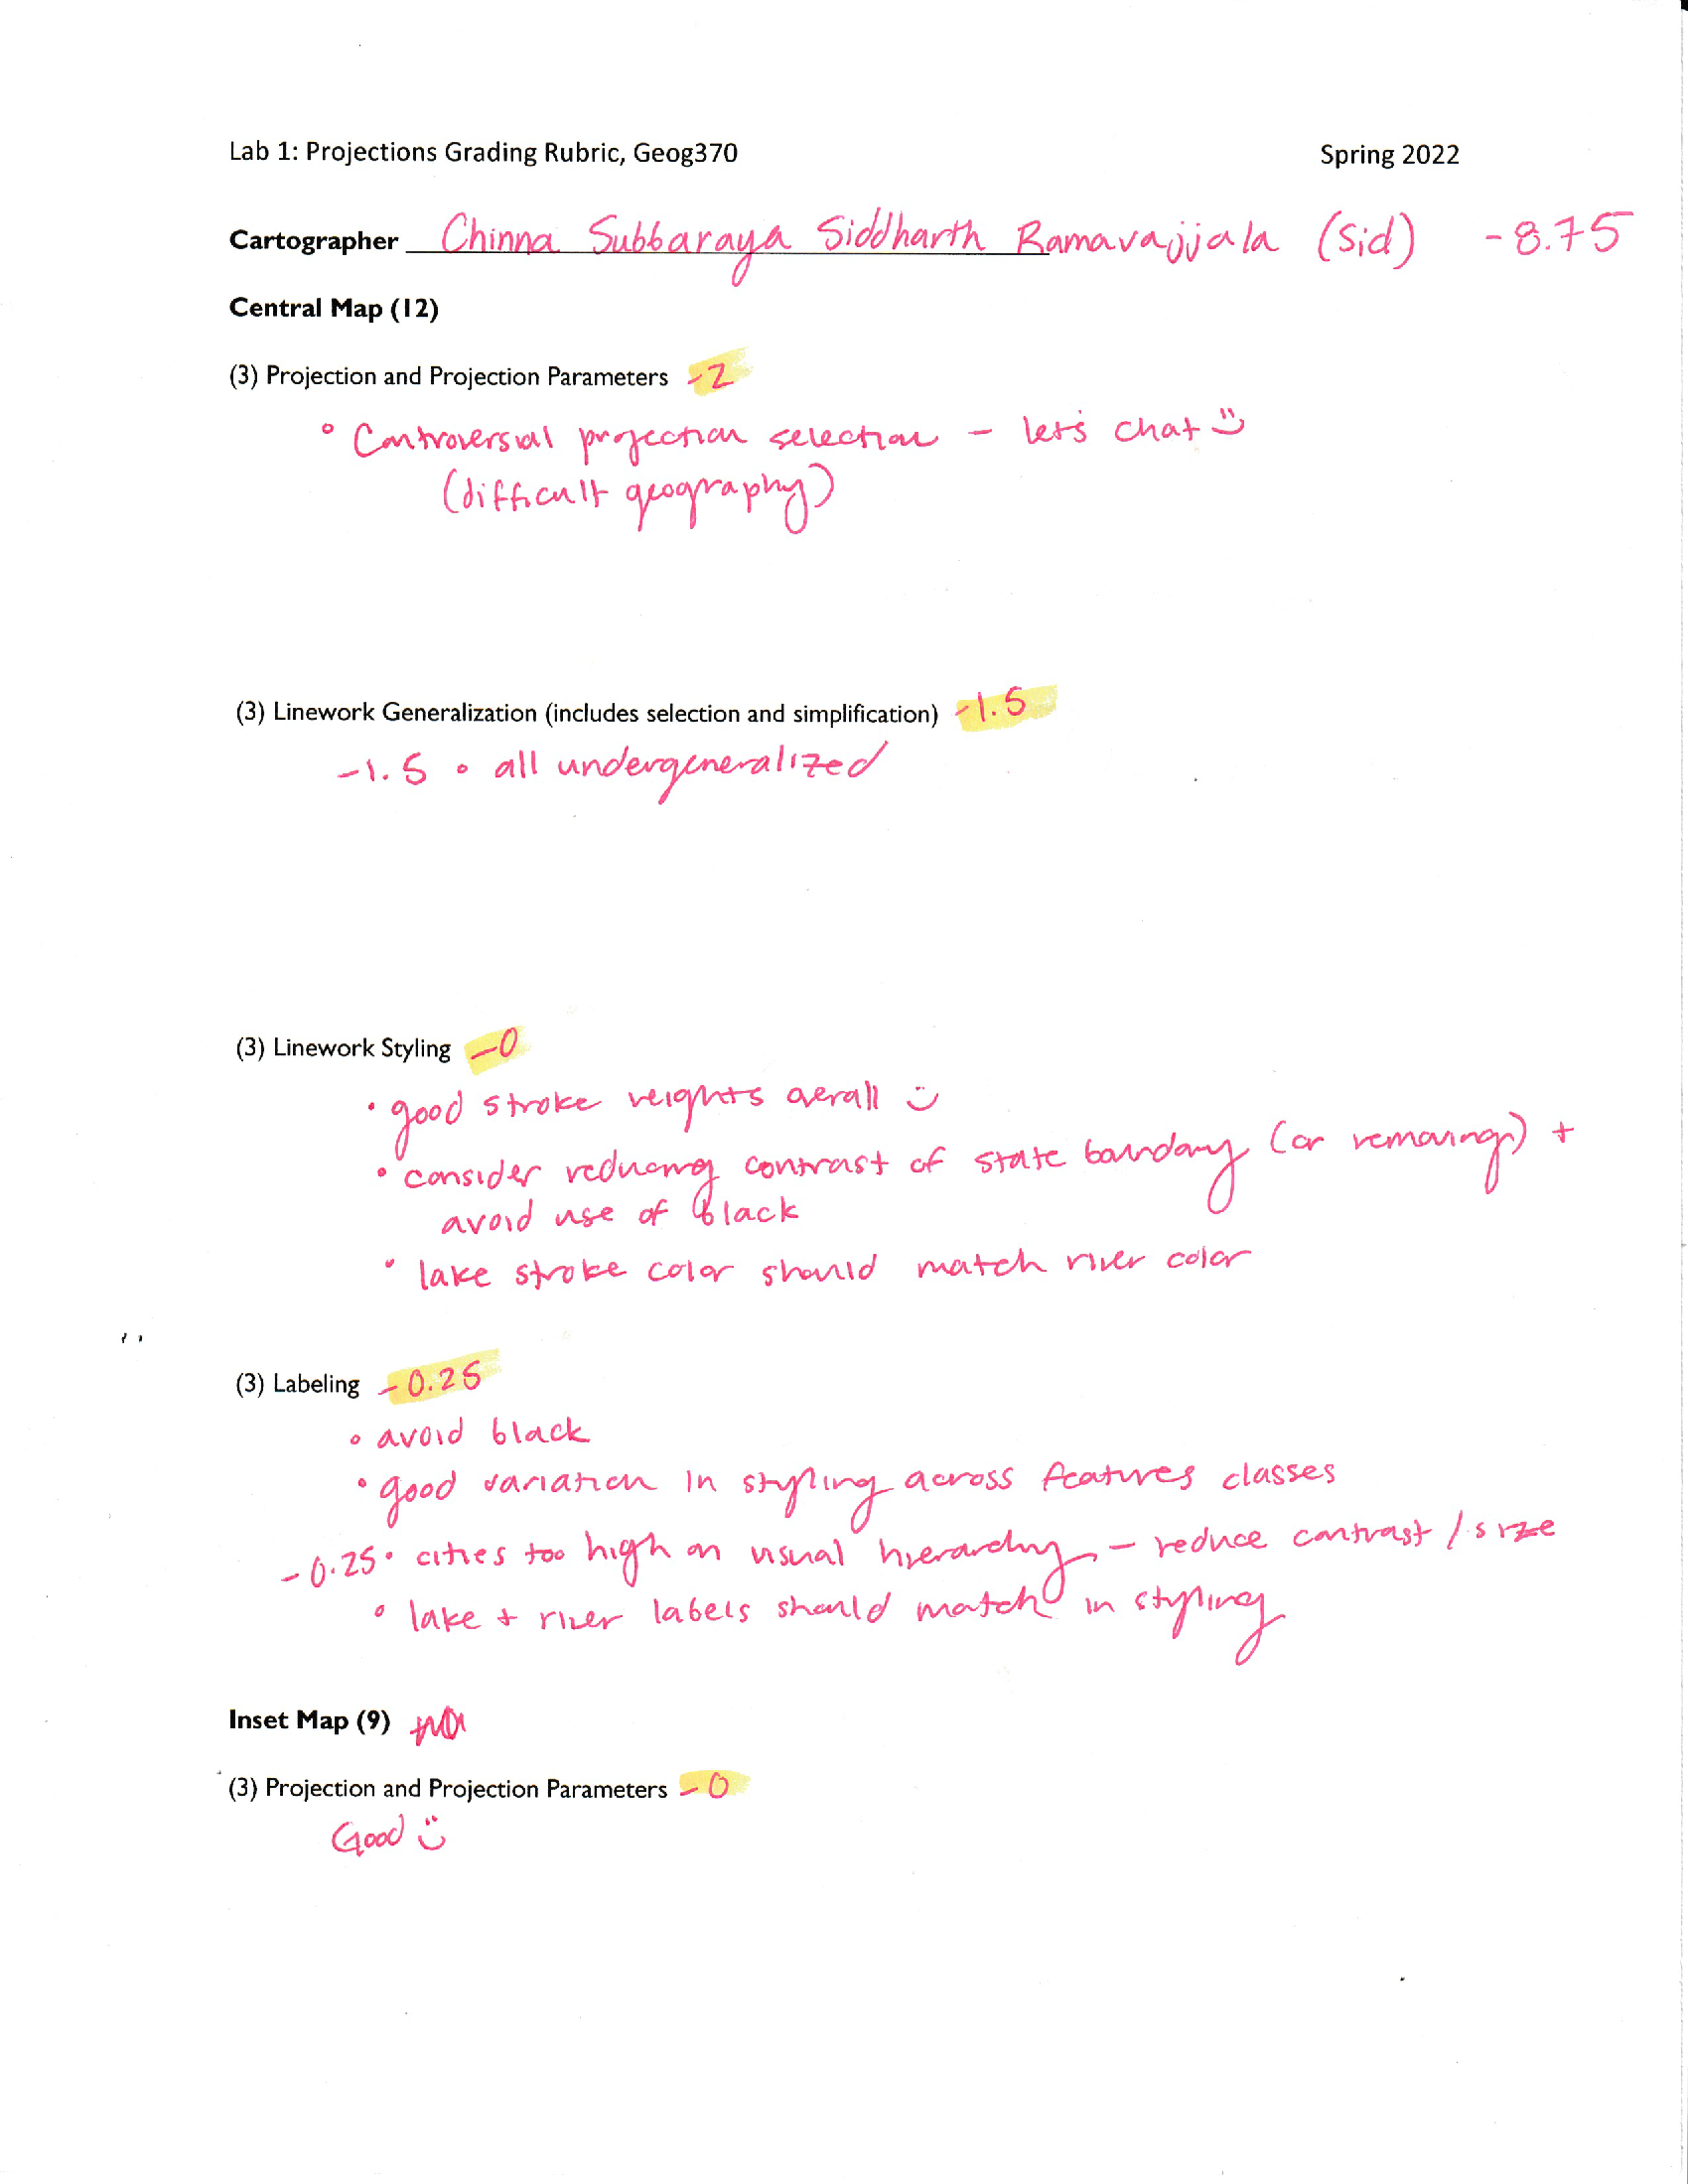 Lab 1: Projections Grading Rubric, Geog370 Spring 2022
Cartographer Chinna Subbaraya Siddharth Ramavajjala (Sid) -8.75
Central Map (12)
(3) Projection and Projection Parameters -2
• Controversial projection selection - let's chat :)
(difficult geography)
(3) Linework Generalization (includes selection and simplification) -1.5
-1.5 • all undergeneralized
(3) Linework Styling -0
• good stroke weights overall :)
• consider reducing contrast of state boundary (or removing) +
avoid use of black
• lake stroke color should match river color
(3) Labeling -0.25
• avoid black
• good variation in styling across features classes
-0.25 • cities too high on visual hierarchy - reduce contrast / size
• lake + river labels should match in styling
Inset Map (9)
(3) Projection and Projection Parameters -0
Good :)